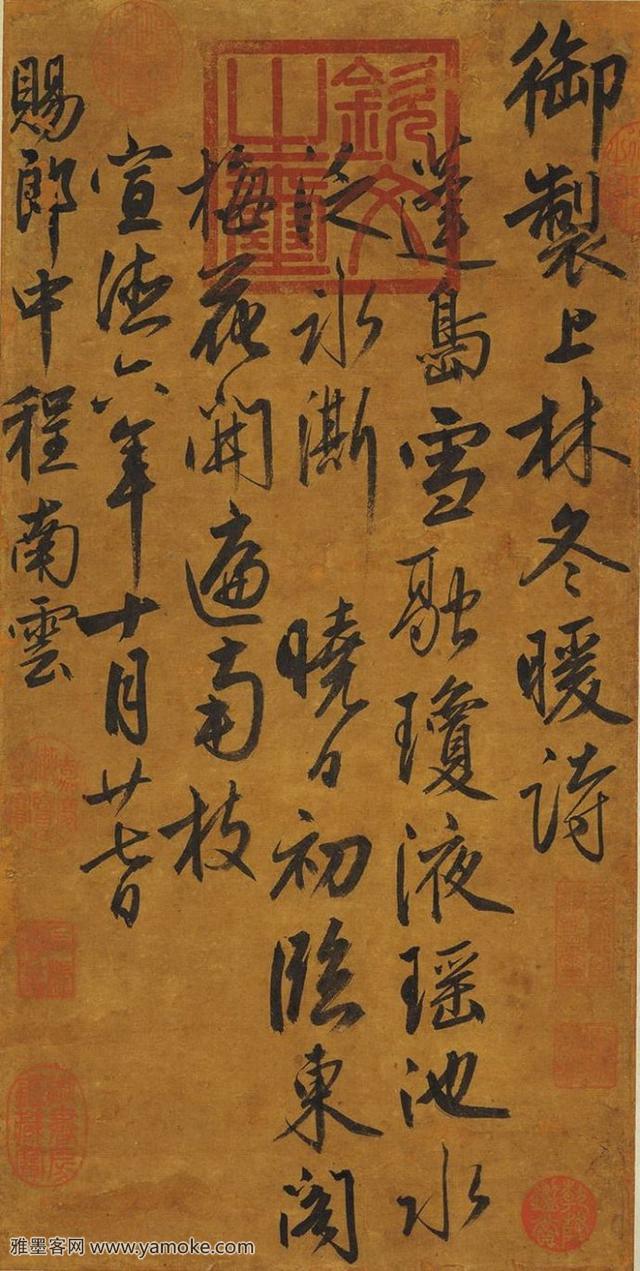 御製上林冬暖詩
蓬島雪融瓊液瑶池水
泛冰澌 曉日初臨東閣
梅花開遍南枝
宣德六年十月廿七日
賜郎中程南雲
欽文之璽
雅墨客网 www.yamoke.com